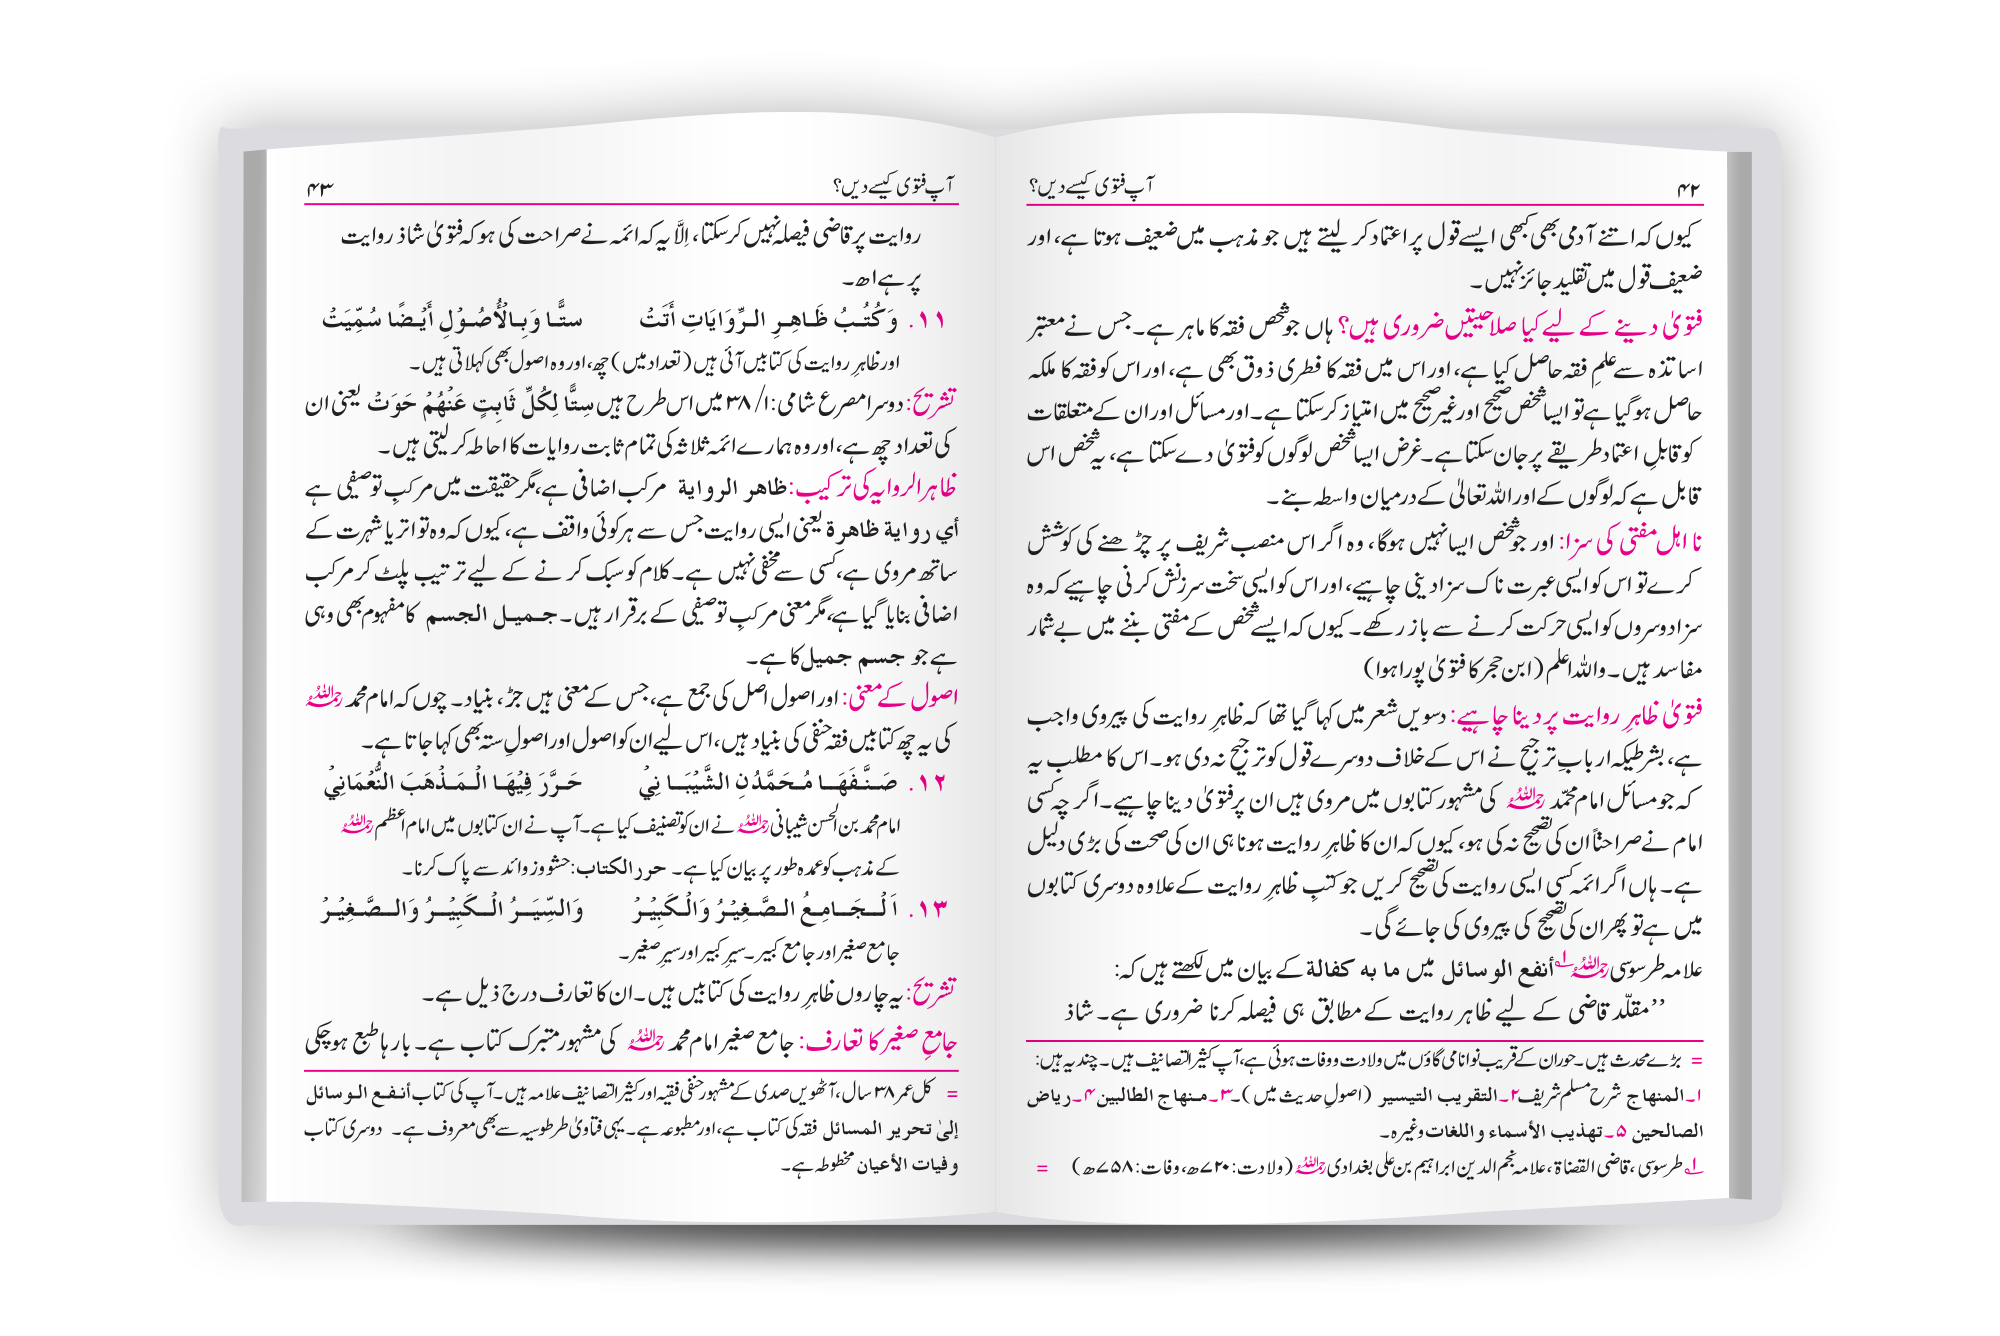 ۴۲ آپ فتوی کیسے دیں؟
کیوں کہ اتنے آدمی بھی کبھی ایسے قول پر اعتماد کر لیتے ہیں جو مذہب میں ضعیف ہوتا ہے، اور
ضعیف قول میں تقلید جائز نہیں۔
فتویٰ دینے کے لیے کیا صلاحیتیں ضروری ہیں؟ ہاں جو شخص فقہ کا ماہر ہے۔ جس نے معتبر
اساتذہ سے علم فقہ حاصل کیا ہے، اور اس میں فقہ کا فطری ذوق بھی ہے، اور اس کو فقہ کا ملکہ
حاصل ہوگیا ہے تو ایسا شخص صحیح اور غیر صحیح میں امتیاز کرسکتا ہے۔ اور مسائل اور ان کے متعلقات
کو قابلِ اعتماد طریقے پر جان سکتا ہے۔ غرض ایسا شخص لوگوں کو فتویٰ دے سکتا ہے، یہ شخص اس
قابل ہے کہ لوگوں کے اور اللہ تعالیٰ کے درمیان واسطہ بنے۔
نا اہل مفتی کی سزا: اور جو شخص ایسا نہیں ہوگا، وہ اگر اس منصب شریف پر چڑھنے کی کوشش
کرے تو اس کو ایسی عبرت ناک سزا دینی چاہیے، اور اس کو ایسی سخت سرزنش کرنی چاہیے کہ وہ
سزا دوسروں کو ایسی حرکت کرنے سے باز رکھے۔ کیوں کہ ایسے شخص کے مفتی بننے میں بے شمار
مفاسد ہیں۔ واللہ اعلم (ابن حجر کا فتویٰ پورا ہوا)
فتویٰ ظاہرِ روایت پر دینا چاہیے: دسویں شعر میں کہا گیا تھا کہ ظاہرِ روایت کی پیروی واجب
ہے، بشرطیکہ اربابِ ترجیح نے اس کے خلاف دوسرے قول کو ترجیح نہ دی ہو۔ اس کا مطلب یہ
کہ جو مسائل امام محمّد رحمہ اللہ کی مشہور کتابوں میں مروی ہیں ان پر فتویٰ دینا چاہیے۔ اگر چہ کسی
امام نے صراحتاً ان کی تصحیح نہ کی ہو، کیوں کہ ان کا ظاہرِ روایت ہونا ہی ان کی صحت کی بڑی دلیل
ہے۔ ہاں اگر ائمہ کسی ایسی روایت کی تصحیح کریں جو کتبِ ظاہرِ روایت کے علاوہ دوسری کتابوں
میں ہے تو پھر ان کی تصحیح کی پیروی کی جائے گی۔
علامہ طرسوسی رحمہ اللہ ۱؎ أنفع الوسائل میں ما به كفالة کے بیان میں لکھتے ہیں کہ:
”مقلّد قاضی کے لیے ظاہر روایت کے مطابق ہی فیصلہ کرنا ضروری ہے۔ شاذ
= بڑے محدث ہیں۔ حوران کے قریب نوا نامی گاؤں میں ولادت و وفات ہوئی ہے، آپ کثیر التصانیف ہیں۔ چند یہ ہیں:
۱۔ المنهاج شرح مسلم شریف ۲۔ التقريب التيسير (اصولِ حدیث میں)۔ ۳۔ منهاج الطالبين ۴۔ رياض
الصالحين ۵۔ تهذيب الأسماء واللغات وغیرہ۔
۱؎ طرسوسی، قاضی القضاۃ، علامہ نجم الدین ابراہیم بن علی بغدادی رحمہ اللہ (ولادت: ۷۲۰ھ، وفات: ۷۵۸ھ) =
آپ فتوی کیسے دیں؟ ۴۳
روایت پر قاضی فیصلہ نہیں کرسکتا، اِلَّا یہ کہ ائمہ نے صراحت کی ہو کہ فتویٰ شاذ روایت
پر ہے اھ۔
۱۱. وَكُتُبُ ظَاهِرِ الرِّوَايَاتِ أَتَتْ ستًّا وَبِالْأُصُوْلِ أَيْضًا سُمِّيَتْ
اور ظاہرِ روایت کی کتابیں آئی ہیں (تعداد میں) چھ، اور وہ اصول بھی کہلاتی ہیں۔
تشریح: دوسرا مصرع شامی: ۱/۳۸ میں اس طرح ہیں سِتًّا لِكُلِّ ثَابِتٍ عَنْهُمْ حَوَتْ یعنی ان
کی تعداد چھ ہے، اور وہ ہمارے ائمہ ثلاثہ کی تمام ثابت روایات کا احاطہ کر لیتی ہیں۔
ظاہر الروایہ کی ترکیب: ظاهر الرواية مرکب اضافی ہے، مگر حقیقت میں مرکبِ توصیفی ہے
أي رواية ظاهرة یعنی ایسی روایت جس سے ہر کوئی واقف ہے، کیوں کہ وہ تواتر یا شہرت کے
ساتھ مروی ہے، کسی سے مخفی نہیں ہے۔ کلام کو سبک کرنے کے لیے ترتیب پلٹ کر مرکب
اضافی بنایا گیا ہے، مگر معنی مرکبِ توصیفی کے برقرار ہیں۔ جميل الجسم کا مفہوم بھی وہی
ہے جو جسم جميل کا ہے۔
اصول کے معنی: اور اصول اصل کی جمع ہے، جس کے معنی ہیں جڑ، بنیاد۔ چوں کہ امام محمد رحمہ اللہ
کی یہ چھ کتابیں فقہ حنفی کی بنیاد ہیں، اس لیے ان کو اصول اور اصولِ ستہ بھی کہا جاتا ہے۔
۱۲. صَنَّفَهَا مُحَمَّدُنِ الشَّيْبَانِيْ حَرَّرَ فِيْهَا الْمَذْهَبَ النُّعْمَانِيْ
امام محمد بن الحسن شیبانی رحمہ اللہ نے ان کو تصنیف کیا ہے۔ آپ نے ان کتابوں میں امام اعظم رحمہ اللہ
کے مذہب کو عمدہ طور پر بیان کیا ہے۔ حرر الكتاب: حشو و زوائد سے پاک کرنا۔
۱۳. اَلْجَامِعُ الصَّغِيْرُ وَالْكَبِيْرُ وَالسِّيَرُ الْكَبِيْرُ وَالصَّغِيْرُ
جامع صغیر اور جامع کبیر۔ سیرِ کبیر اور سیرِ صغیر۔
تشریح: یہ چاروں ظاہرِ روایت کی کتابیں ہیں۔ ان کا تعارف درج ذیل ہے۔
جامعِ صغیر کا تعارف: جامع صغیر امام محمد رحمہ اللہ کی مشہور متبرک کتاب ہے۔ بارہا طبع ہوچکی
= کل عمر ۳۸ سال، آٹھویں صدی کے مشہور حنفی فقیہ اور کثیر التصانیف علامہ ہیں۔ آپ کی کتاب أنفع الوسائل
إلىٰ تحرير المسائل فقہ کی کتاب ہے، اور مطبوعہ ہے۔ یہی فتاویٰ طرطوسیہ سے بھی معروف ہے۔ دوسری کتاب
وفيات الأعيان مخطوطہ ہے۔